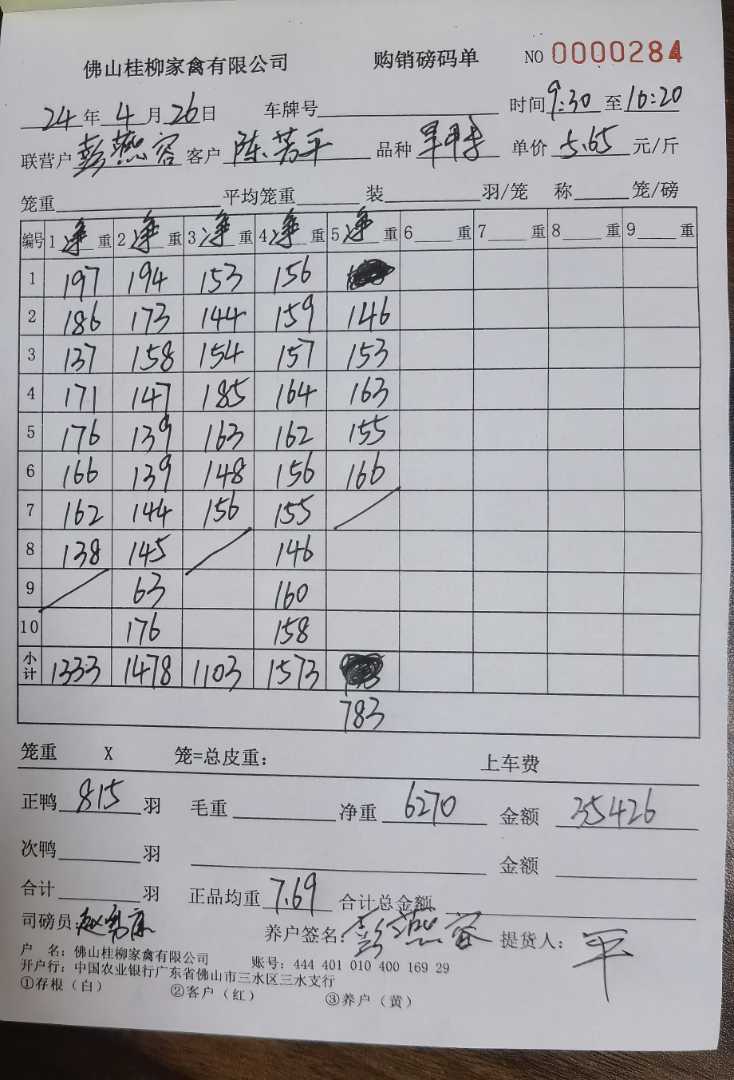 佛山桂柳家禽有限公司 购销磅码单 NO 0000284
24年 4月 26日 车牌号 时间 9:30 至 10:20
联营户 彭燕容 客户 陈芳平 品种 单价 5.65 元/斤
笼重 平均笼重 装 羽/笼 称 笼/磅
编号 1 净 重 2 净 重 3 净 重 4 净 重 5 净 重 6 重 7 重 8 重 9 重
1 197 194 153 156
2 186 173 144 159 146
3 137 158 154 157 153
4 171 147 185 164 163
5 176 139 163 162 155
6 166 139 148 156 166
7 162 144 156 155
8 138 145 146
9 63 160
10 176 158
小计 1333 1478 1103 1573
783
笼重 X 笼=总皮重: 上车费
正鸭 815 羽 毛重 净重 6270 金额 35426
次鸭 羽 金额
合计 羽 正品均重 7.69 合计总金额
司磅员: 养户签名: 彭燕容 提货人: 平
户 名: 佛山桂柳家禽有限公司 账号: 444 401 010 400 169 29
开户行: 中国农业银行广东省佛山市三水区三水支行
①存根(白) ②客户(红) ③养户(黄)